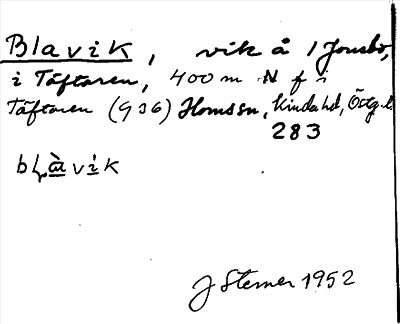 Blavik, vik å 1 Jonsbo,
i Täftaren, 400 m N f i
Täftaren (936) Homssn, Kinda hd, Östg.l.
283
blàvik
J Sterner 1952